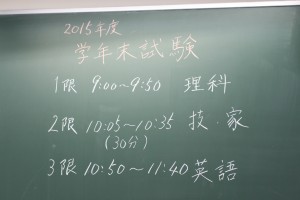 2015年度
学年末試験
1限 9:00~9:50 理科
2限 10:05~10:35 技・家
(30分)
3限 10:50~11:40 英語